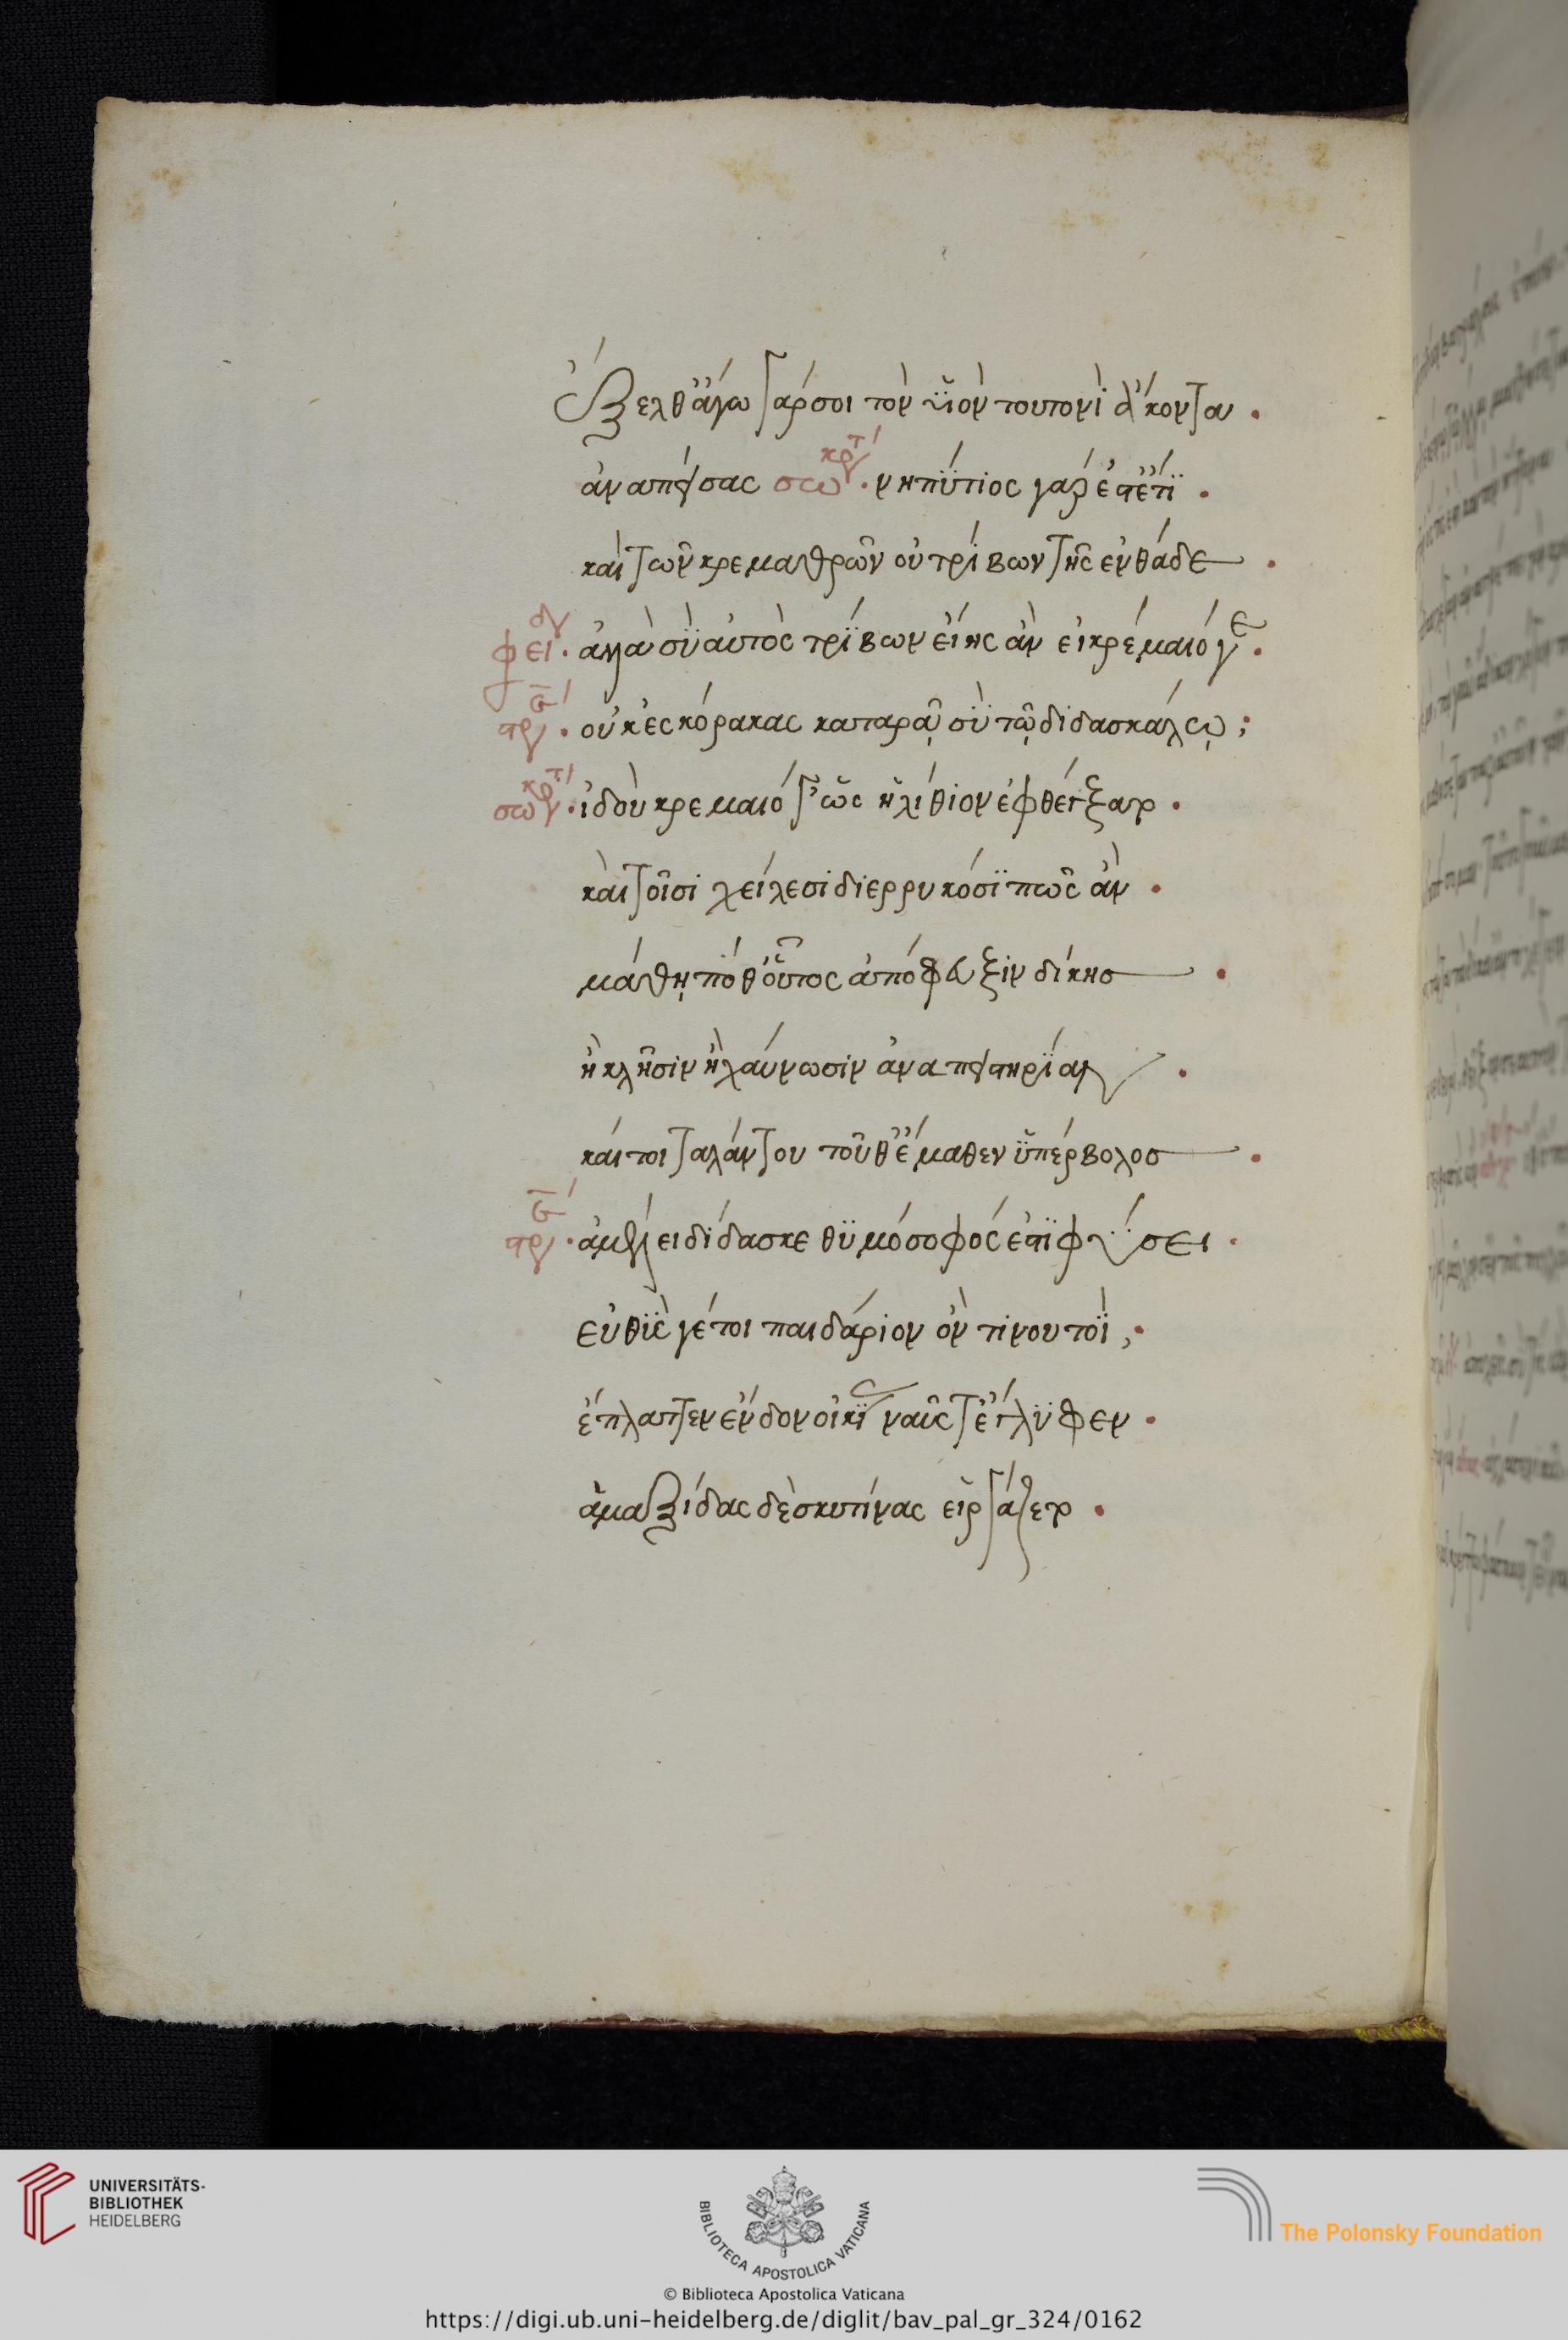 ἔξελθ' ἄγω γάρ σοι τὸν υἱὸν τουτονὶ ἄκοντα.
ἀναπείσας σωκρτ. νηπύτιος γάρ ἐστ' ἔτι.
καὶ τῶν κρεμαθρῶν οὐ τρίβων τῆς ἐνθάδε.
φειδ. ἀλλὰ σὺ αὐτὸς τρίβων εἴης ἂν εἰ κρέμαιό γε.
στρ. οὐκ ἐς κόρακας καταρᾷ σὺ τῷ διδασκάλῳ;
σωκρτ. ἰδοὺ κρεμαιό γ' ὡς ἠλίθιον ἐφθέγξατο.
καὶ τοῖσι χείλεσι διερρυκόσι πῶς ἂν.
μάθῃ πόθ' οὗτος ἀπόφυξιν δίκης.
ἢ κλῆσιν ἢ χαύνωσιν ἀναπειστηρίαν.
καίτοι ταλάντου τοῦθ' ἔμαθεν ὑπέρβολος.
στρ. ἀμέλει δίδασκε θυμόσοφός ἐστι φύσει.
εὐθύς γέ τοι παιδάριον ὂν τυννουτοῒ,
ἔπλαττεν ἔνδον οἰκίας ναῦς τ' ἔγλυφεν.
ἁμαξίδας δὲ σκυτίνας εἰργάζετο.
UNIVERSITÄTS-
BIBLIOTHEK
HEIDELBERG
BIBLIOTECA APOSTOLICA VATICANA
The Polonsky Foundation
© Biblioteca Apostolica Vaticana
https://digi.ub.uni-heidelberg.de/diglit/bav_pal_gr_324/0162